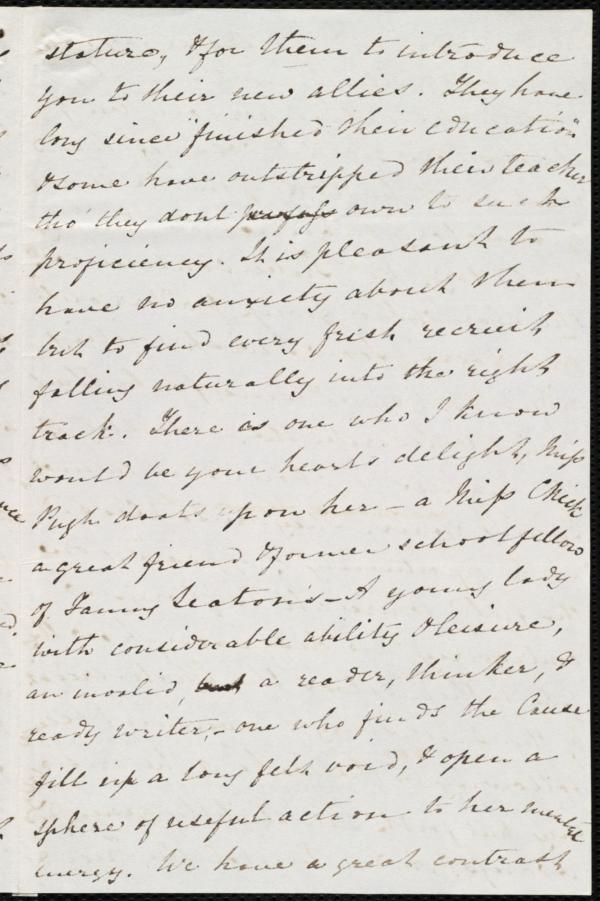 stature, & for them to introduce
you to their new allies. They have
long since "finished their education"
& some have outstripped their teacher
tho' they dont profess own to such
proficiency. It is pleasant to
have no anxiety about them
but to find every fresh recruit
falling naturally into the right
track. There is one who I know
would be your hearts delight, Miss
Pugh doats upon her – a Miss Chick
a great friend & former schoolfellow
of Fanny Seaton's – A young lady
with considerable ability & leisure,
an invalid, but a reader, thinker, &
ready writer, – one who finds the Cause
fill up a long felt void, & open a
sphere of useful action to her mental
energy. We have a great contrast